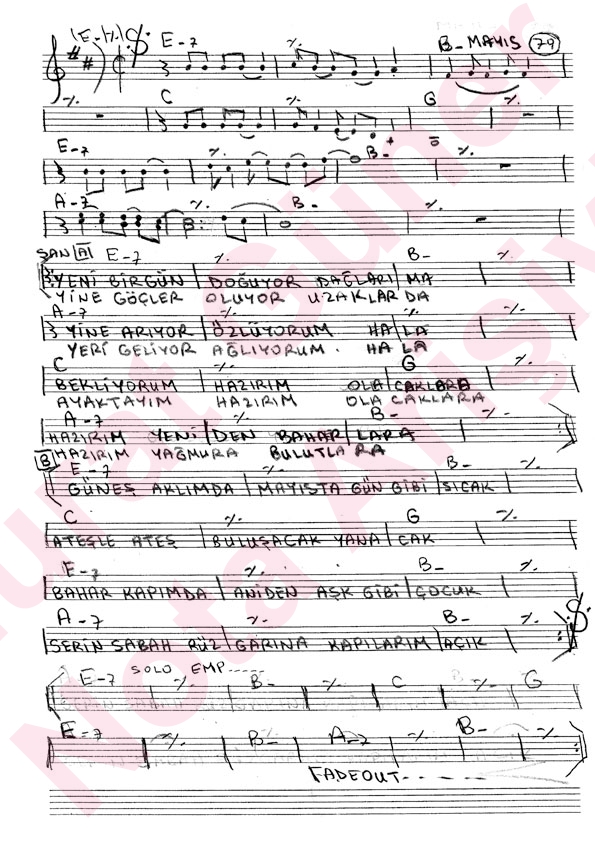 (E-7) E-7 ٪ B- MAYIS 79
٪ C ٪ G ٪
E-7 ٪ B- ٪
A-7 ٪ B- ٪
ŞAN A E-7 ٪ B- ٪
YENİ BİRGÜN DOĞUYOR DAĞLARI MA
YİNE GÖÇLER OLUYOR UZAKLAR DA
A-7 ٪ B- ٪
YİNE ARIYOR ÖZLÜYORUM HA LA
YERİ GELİYOR AĞLIYORUM. HA LA
C ٪ G ٪
BEKLİYORUM HAZIRIM OLA CAKLARA
AYAKTAYIM HAZIRIM OLA CAKLARA
A-7 ٪ B- ٪
HAZIRIM YENİ DEN BAHAR LARA
HAZIRIM YAĞMURA BULUTLA RA
B E-7 ٪ B- ٪
GÜNEŞ AKLIMDA MAYISTA GÜN GİBİ SICAK
C ٪ G ٪
ATEŞLE ATEŞ BULUŞACAK YANA CAK
E-7 ٪ B- ٪
BAHAR KAPIMDA ANİDEN AŞK GİBİ ÇOCUK
A-7 ٪ B- ٪
SERİN SABAH RÜZ GARINA KAPILARIM AÇIK
SOLO EMP------
E-7 ٪ B- ٪ C ٪ G
E-7 ٪ B- A-7 ٪ B- ٪
FADEOUT- - - -----
Murat Güner
Nota Arşivi